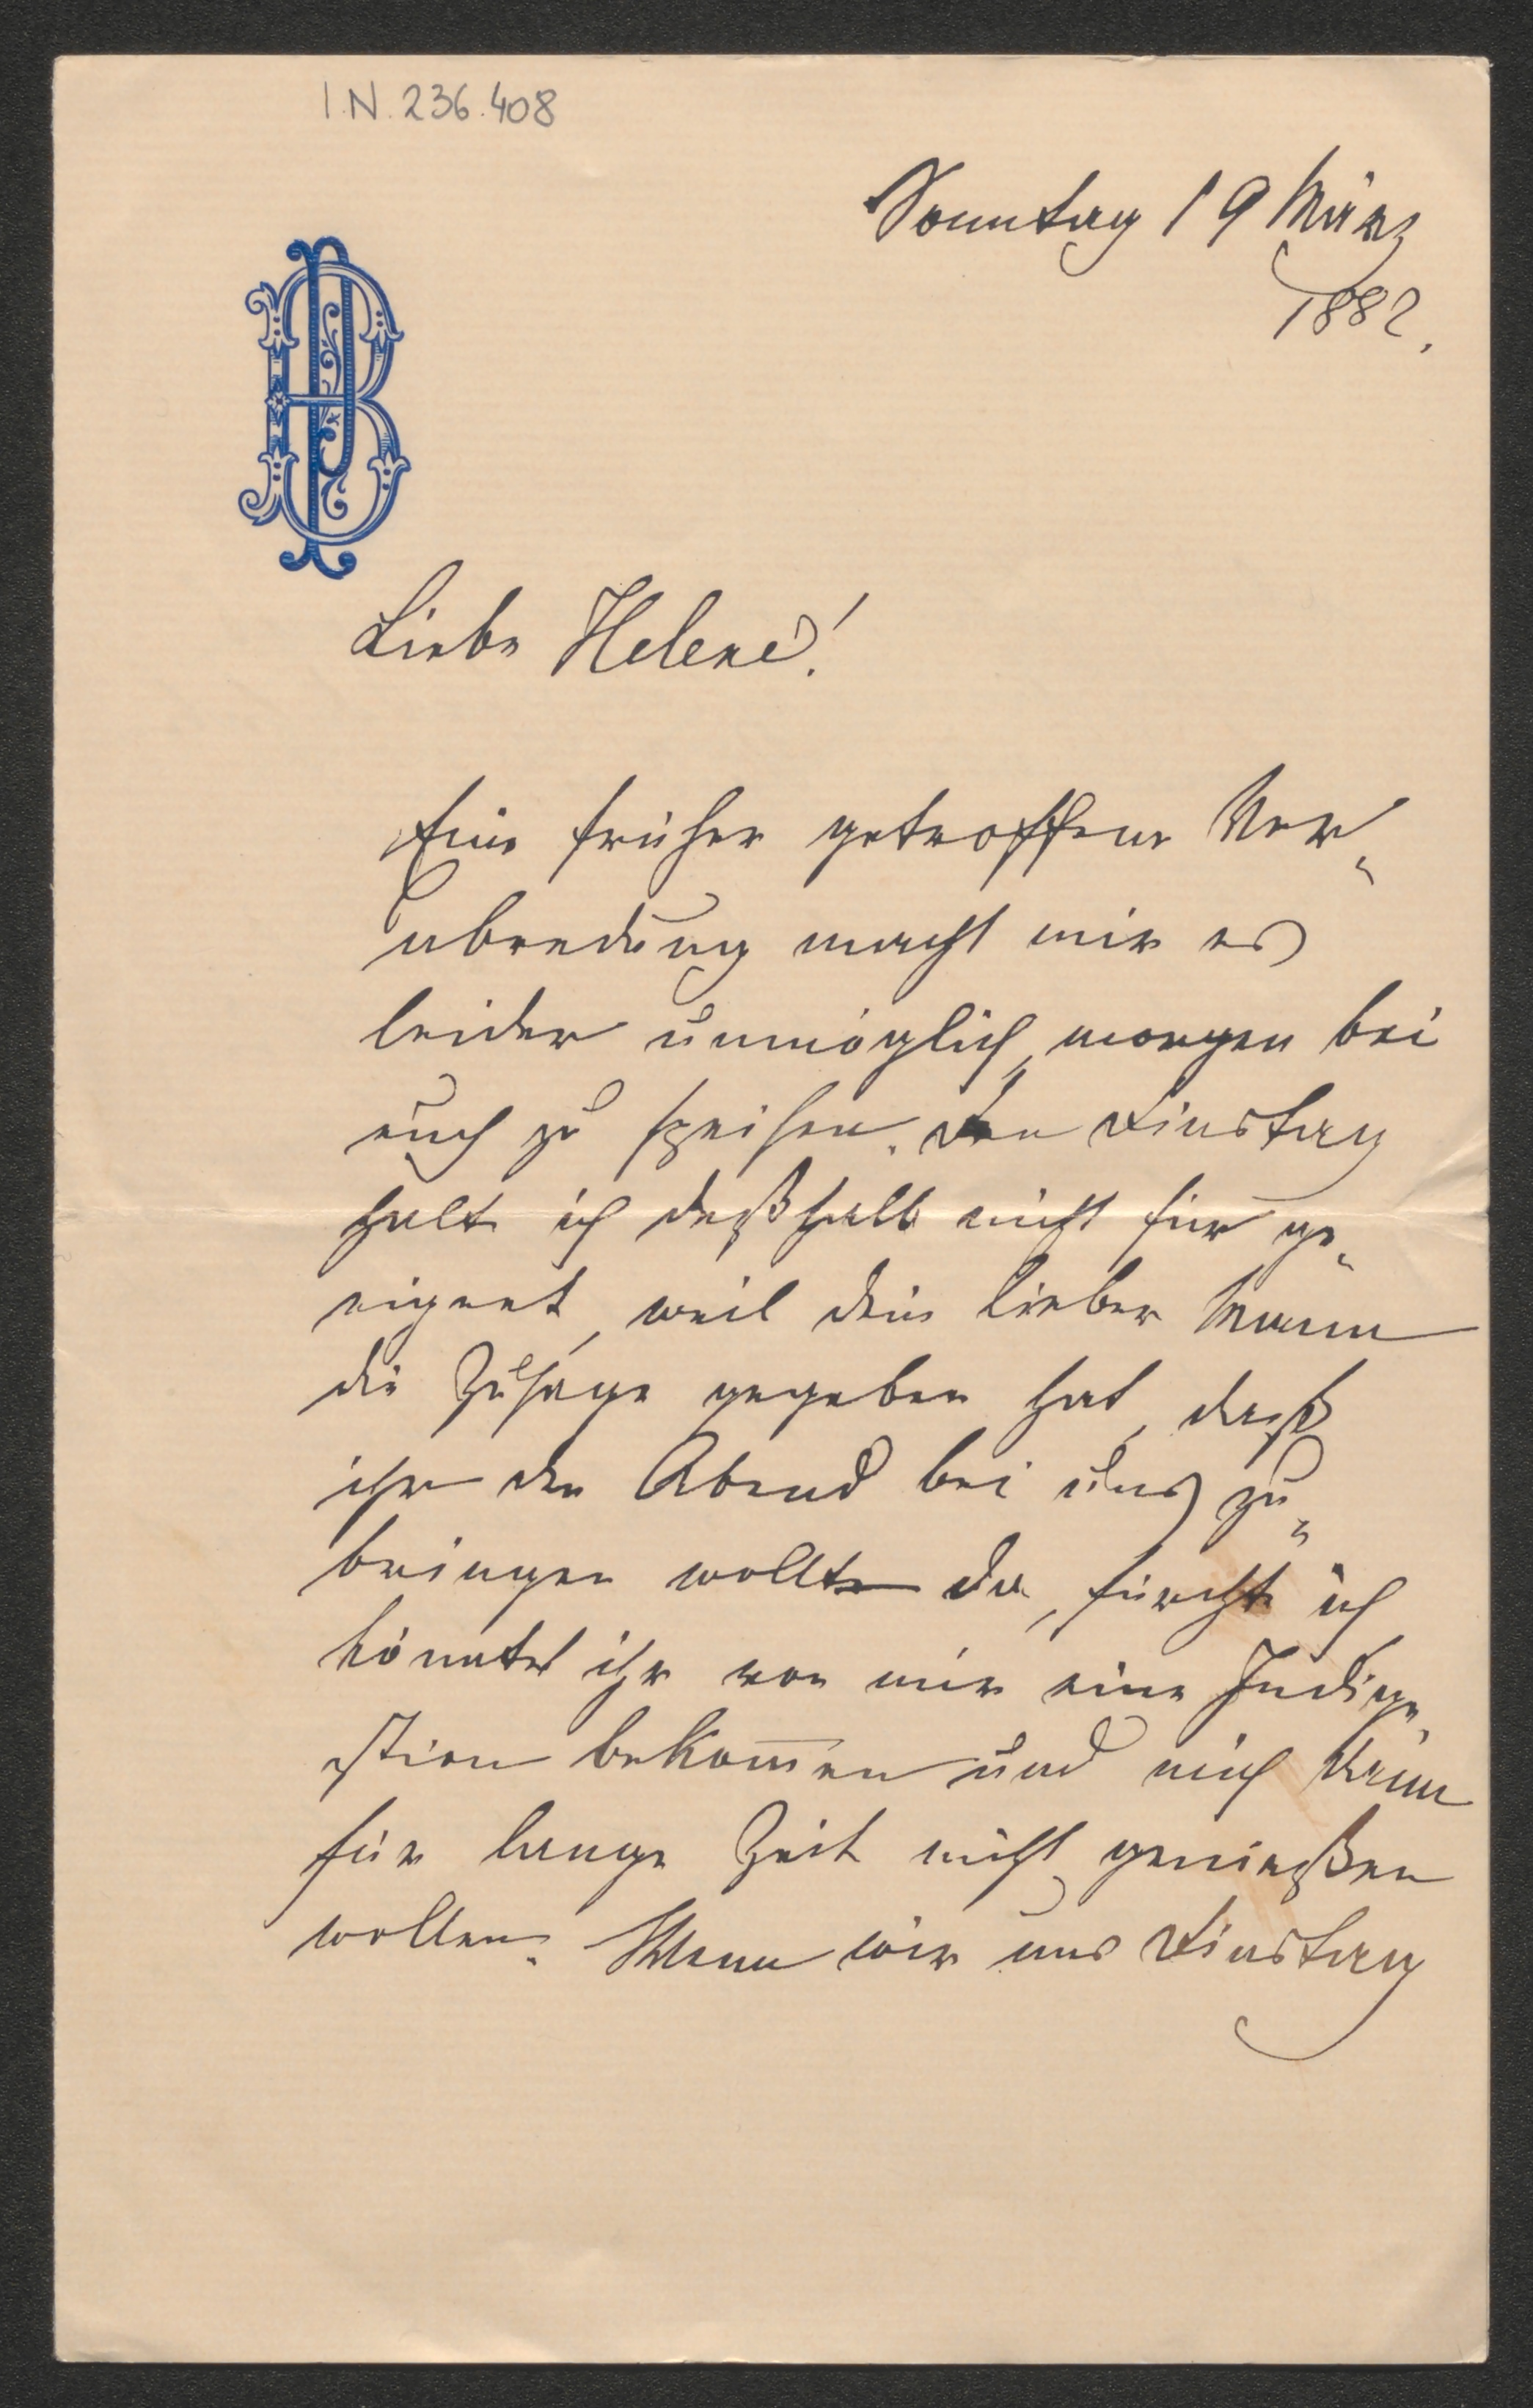 I.N. 236.408
Sonntag 19 März
1882.
Liebe Helene!
Eine früher getroffene Ver-
abredung macht mir es
leider unmöglich, morgen bei
euch zu speisen. Den Dinstag
halte ich deßhalb nicht für ge-
eignet, weil dein lieber Mann
die Zusage gegeben hat, daß
ihr den Abend bei uns zu-
bringen wollt. Da, fürchte ich
könntet ihr von mir eine Indige-
stion bekom̅en und mich dann
für lange Zeit nicht genießen
wollen. Wenn wir uns Dinstag